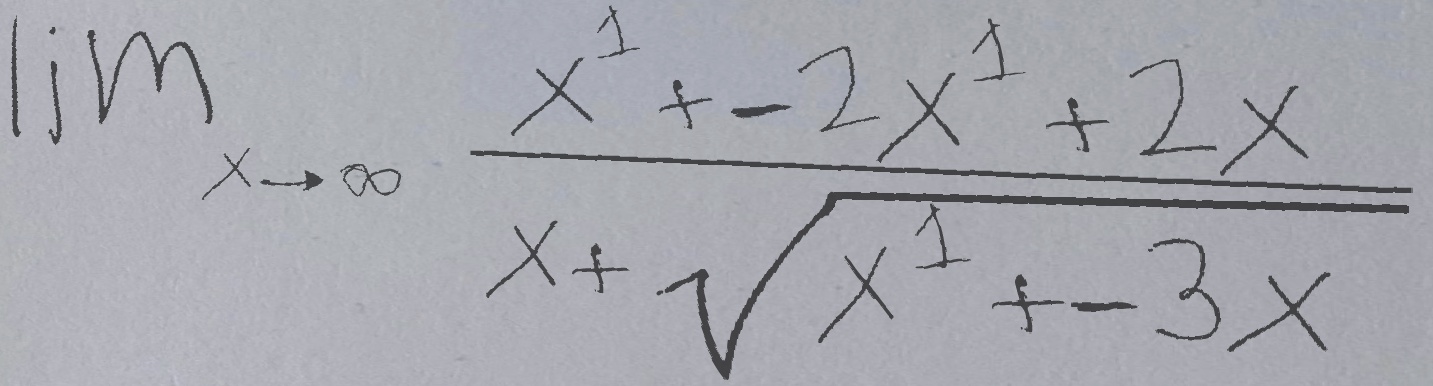 \lim_{x \to \infty} \frac{x^1 + -2x^1 + 2x}{x + \sqrt{x^1 + -3x}}